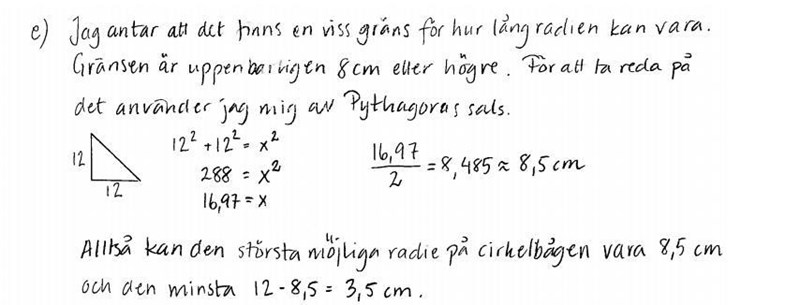 e) Jag antar att det finns en viss gräns för hur lång radien kan vara.
Gränsen är uppenbarligen 8 cm eller högre. För att ta reda på
det använder jag mig av Pythagoras sats.
12² + 12² = x²
12
288 = x²
16,97 = x
12
16,97 / 2 = 8,485 ≈ 8,5 cm
Alltså kan den största möjliga radie på cirkelbågen vara 8,5 cm
och den minsta 12 - 8,5 = 3,5 cm.